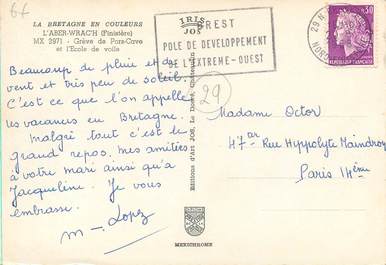 6f
LA BRETAGNE EN COULEURS
L'ABER-WRAC'H (Finistère)
MX 2971 - Grève de Pors-Cave
et l'Ecole de voile
IRIS
JOS
BREST
POLE DE DEVELOPPEMENT
DE L'EXTREME-OUEST
29 N
NORD
0,30
REPUBLIQUE FRANÇAISE
29
Beaucoup de pluie et de
vent et très peu de soleil.
C'est ce que l'on appelle
les vacances en Bretagne.
Malgré tout c'est le
grand repos. mes amitiées
à votre mari ainsi qu'a
Jacqueline. Je vous
embrasse.
M- Lopez
Editions d'Art JOS, Le Doaré, Chateaulin
MEXICHROME
Madame Octor
47 ter Rue Hippolyte Maindron
Paris 14ème